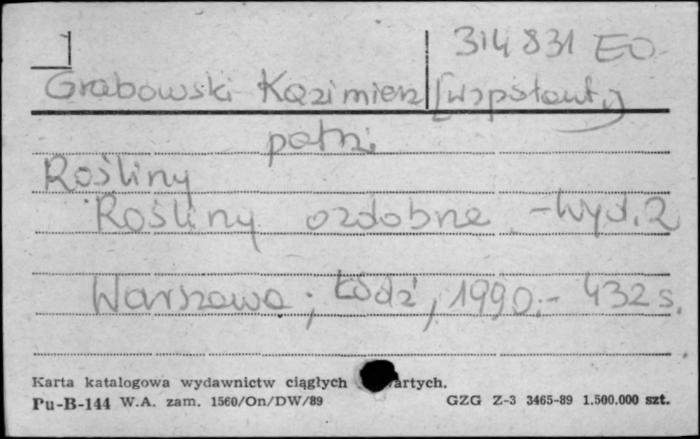 314 831 EO
Grabowski Kazimierz [współaut.]
patrz:
Rośliny
Rośliny ozdobne .- Wyd. 2
Warszawa ; Łódź, 1990.- 432 s.
Karta katalogowa wydawnictw ciągłych artych.
Pu-B-144 W.A. zam. 1560/On/DW/89 GZG Z-3 3465-89 1.500.000 szt.